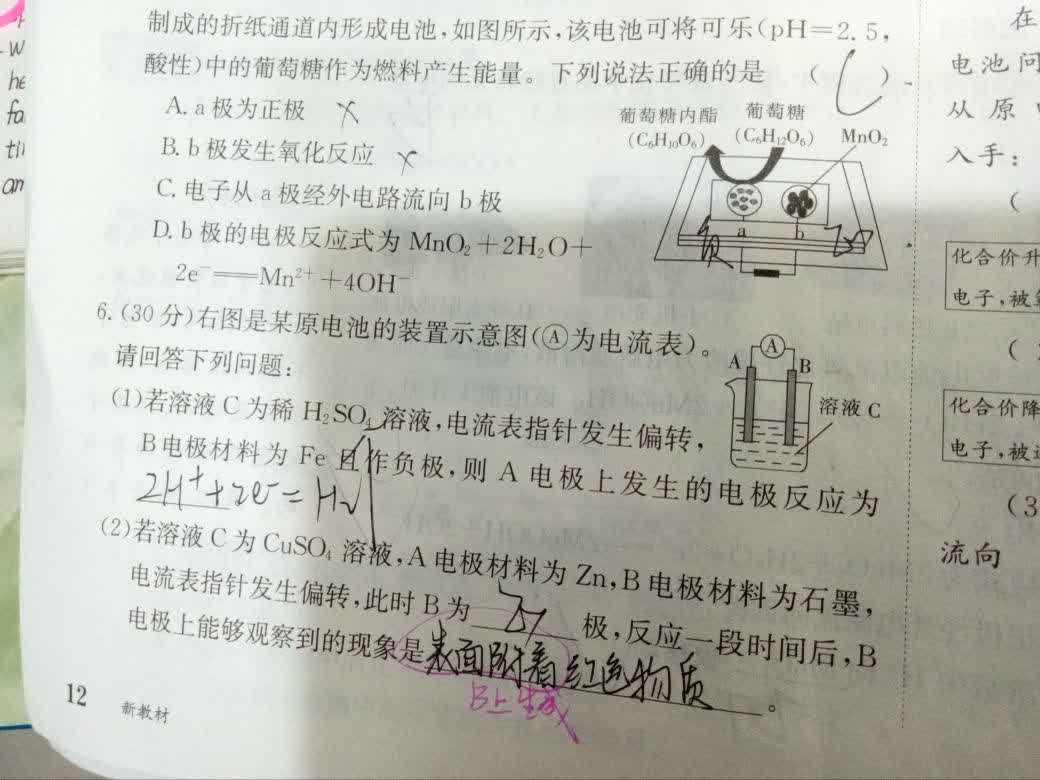 制成的折纸通道内形成电池,如图所示,该电池可将可乐(pH=2.5,
酸性)中的葡萄糖作为燃料产生能量。下列说法正确的是 ( C )
A. a 极为正极 ×
B. b 极发生氧化反应 ×
C. 电子从 a 极经外电路流向 b 极
D. b 极的电极反应式为 MnO₂+2H₂O+
2e⁻══Mn²⁺+4OH⁻
葡萄糖内酯 葡萄糖
(C₆H₁₀O₆) (C₆H₁₂O₆) MnO₂
a b
负 正
6. (30 分)右图是某原电池的装置示意图(Ⓐ为电流表)。
请回答下列问题:
(1)若溶液 C 为稀 H₂SO₄ 溶液,电流表指针发生偏转,
B 电极材料为 Fe 且作负极,则 A 电极上发生的电极反应为
2H⁺+2e⁻=H₂↑
A Ⓐ B
溶液 C
(2)若溶液 C 为 CuSO₄ 溶液,A 电极材料为 Zn,B 电极材料为石墨,
电流表指针发生偏转,此时 B 为 正 极,反应一段时间后,B
电极上能够观察到的现象是表面附着红色物质。
B上生成
12 新教材
在
电池问
从原
入手:
(
化合价升
电子,被氧
(
化合价降
电子,被还
(3
流向
w
he
fa
ti
am